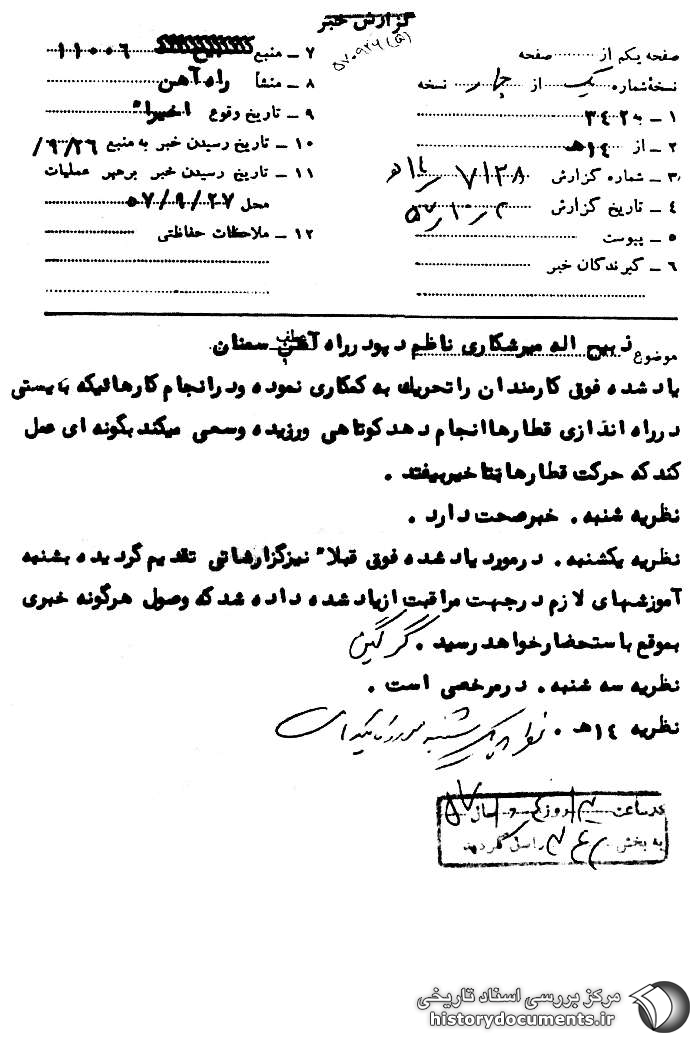 گزارش خبر
۵۷۰۹۲۹ (۵)
صفحه یکم از ........ صفحه
نسخهٔ شماره یک از چهار نسخه
۱ ـ به ۳۴۲
۲ ـ از ۱۴هـ
۳ ـ شماره گزارش ۷۱۲۸ / ۱۴هـ
۴ ـ تاریخ گزارش ۲ / ۱۰ / ۵۷
۵ ـ پیوست
۶ ـ گیرندگان خبر
۷ ـ منبع ۱۱۰۰۶
۸ ـ منشأ راه آهن
۹ ـ تاریخ وقوع اخیرا"
۱۰ ـ تاریخ رسیدن خبر به منبع ۹/۲۶/
۱۱ ـ تاریخ رسیدن خبر برهبر عملیات
محل ۵۷/۹/۲۷
۱۲ ـ ملاحظات حفاظتی
موضوع ذبیح اله میرشکاری ناظم دپودرراه آهن سمنان
عطف
یادشده فوق کارمندان راتحریك به کمکاری نموده ودرانجام کارهائیکه بایستی
درراه اندازی قطارهاانجام دهدکوتاهی ورزیده وسعی میکندبگونه ای عمل
کندکه حرکت قطارهابتاخیربیفتد .
نظریه شنبه . خبرصحت دارد .
نظریه یکشنبه . درموردیادشده فوق قبلا" نیزگزارشاتی تقدیم گردیده بشنبه
آموزشهای لازم درجهت مراقبت ازیادشده داده شدکه وصول هرگونه خبری
بموقع باستحضارخواهدرسید . گرگین
نظریه سه شنبه . درمرخصی است .
نظریه ۱۴هـ . شنبه
درساعت روز سال ۵۷
به بخش ارسال گردید
مرکز بررسی اسناد تاریخی
historydocuments.ir